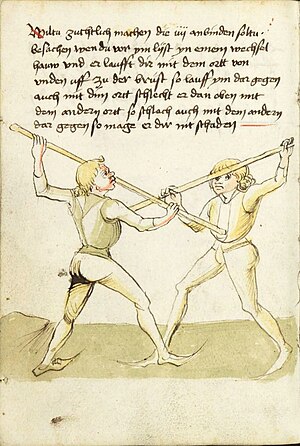 Wiltu zuchtlich machen die iiij anbinden soltu
besachen wen du vor ym list yn einem wechsel
hauw und er laufft dir mit dem ort von
unden uff zu der brust so lauff ym dar gegen
auch mit dim ort schlecht er dan oben mit
dem andern ort so schlach auch mit dem andern
dar gegen so mage er dir nit schaden